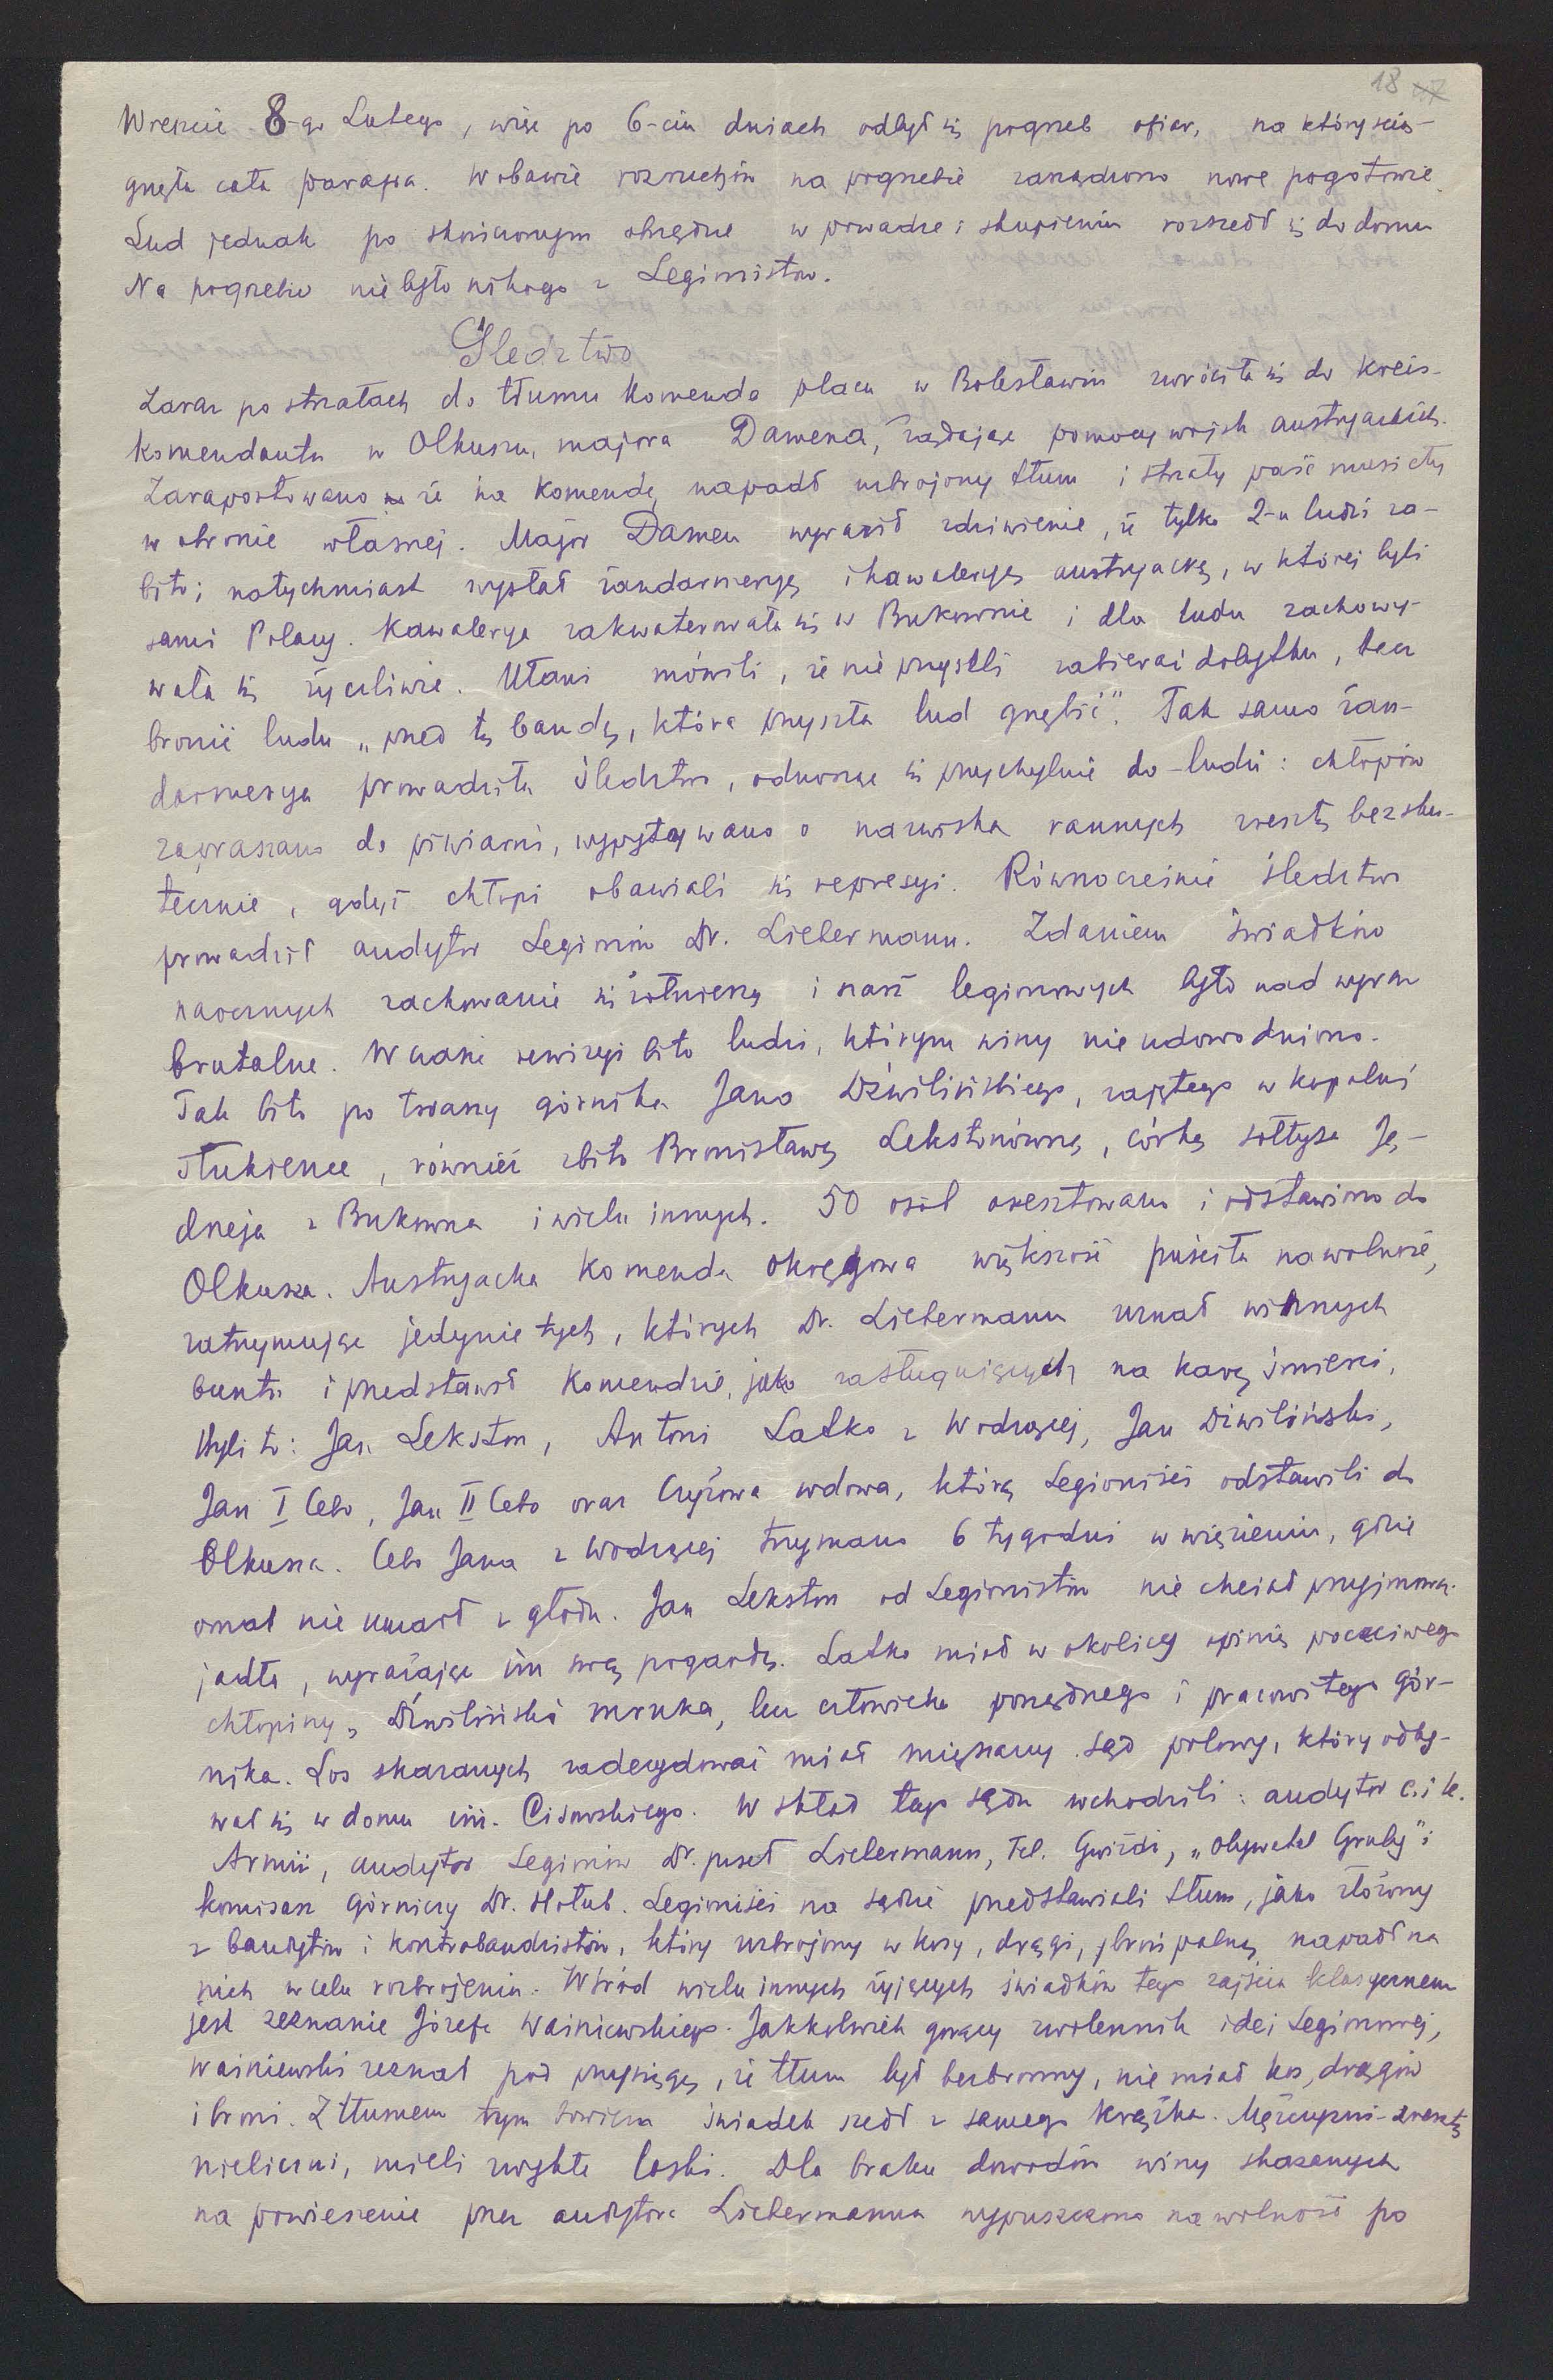 18 17
Wreszcie 8-go Lutego, więc po 6-ciu dniach odbył się pogrzeb ofiar, na który ścią-
gnęła cała parafia. W obawie rozruchów na pogrzebie zarządzono nowe pogotowie.
Lud jednak po skończonym obrzędzie w powadze i skupieniu rozszedł się do domu
Na pogrzebie nie było nikogo z Legionistów.
Śledztwo
Zaraz po strzałach do tłumu Komenda placu w Bolesławiu zwróciła się do Kreis-
komendanta w Olkuszu, majora Damena, żądając pomocy wojsk austryackich.
Zaraportowano że na Komendę napadł uzbrojony tłum i strzały paść musiały
w obronie własnej. Major Damen wyraził zdziwienie, że tylko 2-u ludzi za-
bito; natychmiast wysłał żandarmeryę i kawaleryę austryacką, w której byli
sami Polacy. Kawalerya zakwaterowała się w Bukownie i dla ludu zachowy-
wała się życzliwie. Ułani mówili, że nie przyszli zabierać dobytku, lecz
bronić ludu „przed tą bandą, która przyszła lud gnębić". Tak samo żan-
darmerya prowadziła śledztwo, odnosząc się przychylnie do ludzi: chłopów
zapraszano do piwiarni, wypytywano o nazwiska rannych zresztą bezsku-
tecznie, gdyż chłopi obawiali się represyi. Równocześnie śledztwo
prowadził audytor Legionów Dr. Liebermann. Zdaniem świadków
naocznych zachowanie się żołnierzy i szarż legionowych było nad wyraz
brutalne. W czasie rewizyi bito ludzi, którym winy nie udowodniono.
Tak bito po twarzy górnika Jana Dźwilińskiego, zajętego w kopalni
Ułukience, również zbito Bronisławę Lekstonównę, córkę sołtysa Ję-
drzeja z Bukowna i wielu innych. 50 osób aresztowano i odstawiono do
Olkusza. Austryacka Komenda okręgowa większość puściła na wolność,
zatrzymując jedynie tych, których Dr. Liebermann uznał winnych
buntu i przedstawił Komendzie, jako zasługujących na karę śmierci,
Byli to: Jan Lekston, Antoni Latko z Wodącej, Jan Dźwiliński,
Jan I Cebo, Jan II Cebo oraz Czyżowa wdowa, którą Legioniści odstawili do
Olkusza. Cebo Jana z Wodącej trzymano 6 tygodni w więzieniu, gdzie
omal nie umarł z głodu. Jan Lekston od Legionistów nie chciał przyjmowa.
jadła, wyrażając im swą pogardę. Latko miał w okolicy opinię poczciwego
chłopiny, Dźwiliński mruka, lecz człowieka porządnego i pracowitego gór-
nika. Los skazanych zadecydować miał mięszany sąd polowy, który odby-
wał się w domu inż. Cisowskiego. W skład tego sądu wchodzili: audytor c. i k.
Armii, audytor Legionów Dr. poseł Liebermann, Fel. Gwiżdż, „obywatel Gruby" i
komisarz górniczy Dr. Hołub. Legioniści na sądzie przedstawiali tłum, jako złożony
z bandytów i kontrabandzistów, który uzbrojony w kosy, drągi, i broń palną napadł na
nich w celu rozbrojenia. Wśród wielu innych żyjących świadków tego zajścia klasycznem
jest zeznanie Józefa Waśniewskiego. Jakkolwiek gorący zwolennik idei Legionowej,
Waśniewski zeznał pod przysięgą, że tłum był bezbronny, nie miał kos, drągów
i broni. Z tłumem tym bowiem świadek szedł z samego Krążka. Mężczyzni-zresztą
nieliczni, mieli zwykłe laski. Dla braku dowodów winy skazanych
na powieszenie przez audytora Liebermanna wypuszczono na wolność po